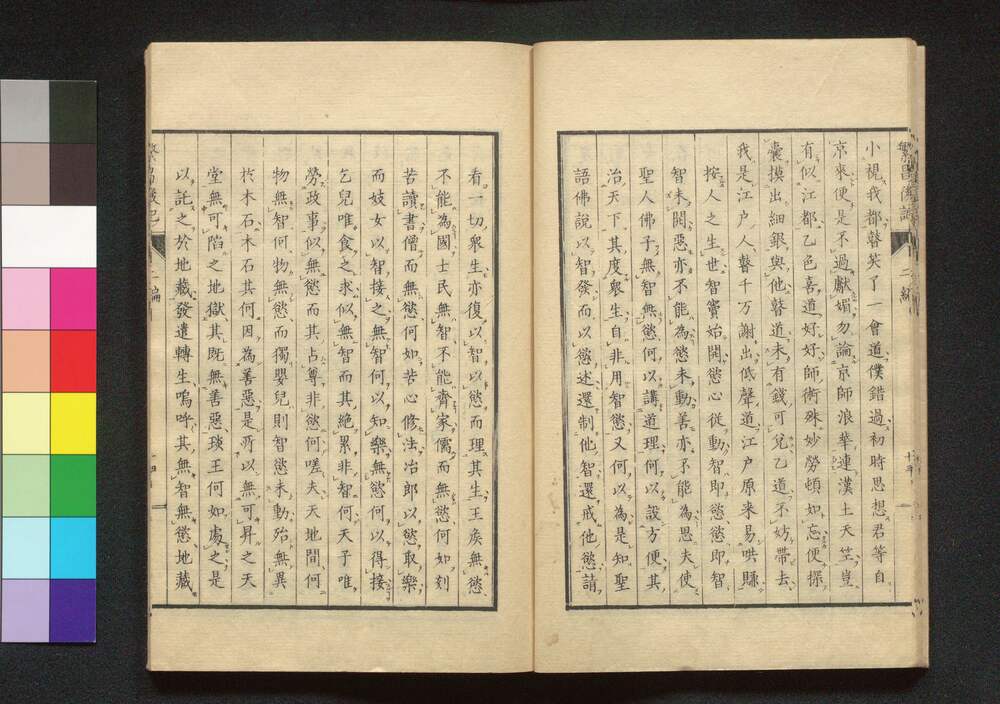 小視我都瞽笑了一會道僕錯過初時思想君等自
京來便是不過獻媚勿論京師浪華連漢土天竺豈
有似江都乙色喜道好好師術殊妙勞頓如忘便探
囊摸出細銀與他瞽道未有錢可兌乙道不妨帶去
我是江户人瞽千万謝出低聲道江户原来易哄賺
按人之生世智竇始開慾心従動智即慾慾即智
智未開惡亦不能為慾未動善亦不能為思夫使
聖人佛子無智無慾何以講道理何以設方便其
治天下其度衆生自非用智慾又何以為是知聖
語佛說以智發而以慾述還制他智還戒他慾請
看一切衆生亦復以智以慾而理其生王矦無慾
不能為國士民無智不能齊家儒而無慾何如刻
苦讀書僧而無慾何如苦心修法冶郎以慾取樂
而妓女以智接之無智何以知樂無慾何以得接
乞兒唯食之求似無智而其絶累非智何天子唯
勞政事似無慾而其占尊非慾何嗟夫天地間何
物無智何物無慾而獨嬰兒則智慾未動殆無異
於木石木石其何因為善惡是所以無可昇之天
堂無可陷之地獄其既無善惡琰王何如處之是
以託之於地藏發遣轉生嗚呼其無智無慾地藏
二編